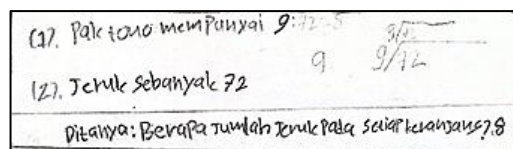 (1). Pak tono mempunyai 9:72=8
9 9/72
(2). Jeruk Sebanyak 72
Ditanya: Berapa Jumlah Jeruk Pada setiap keranjang?.8